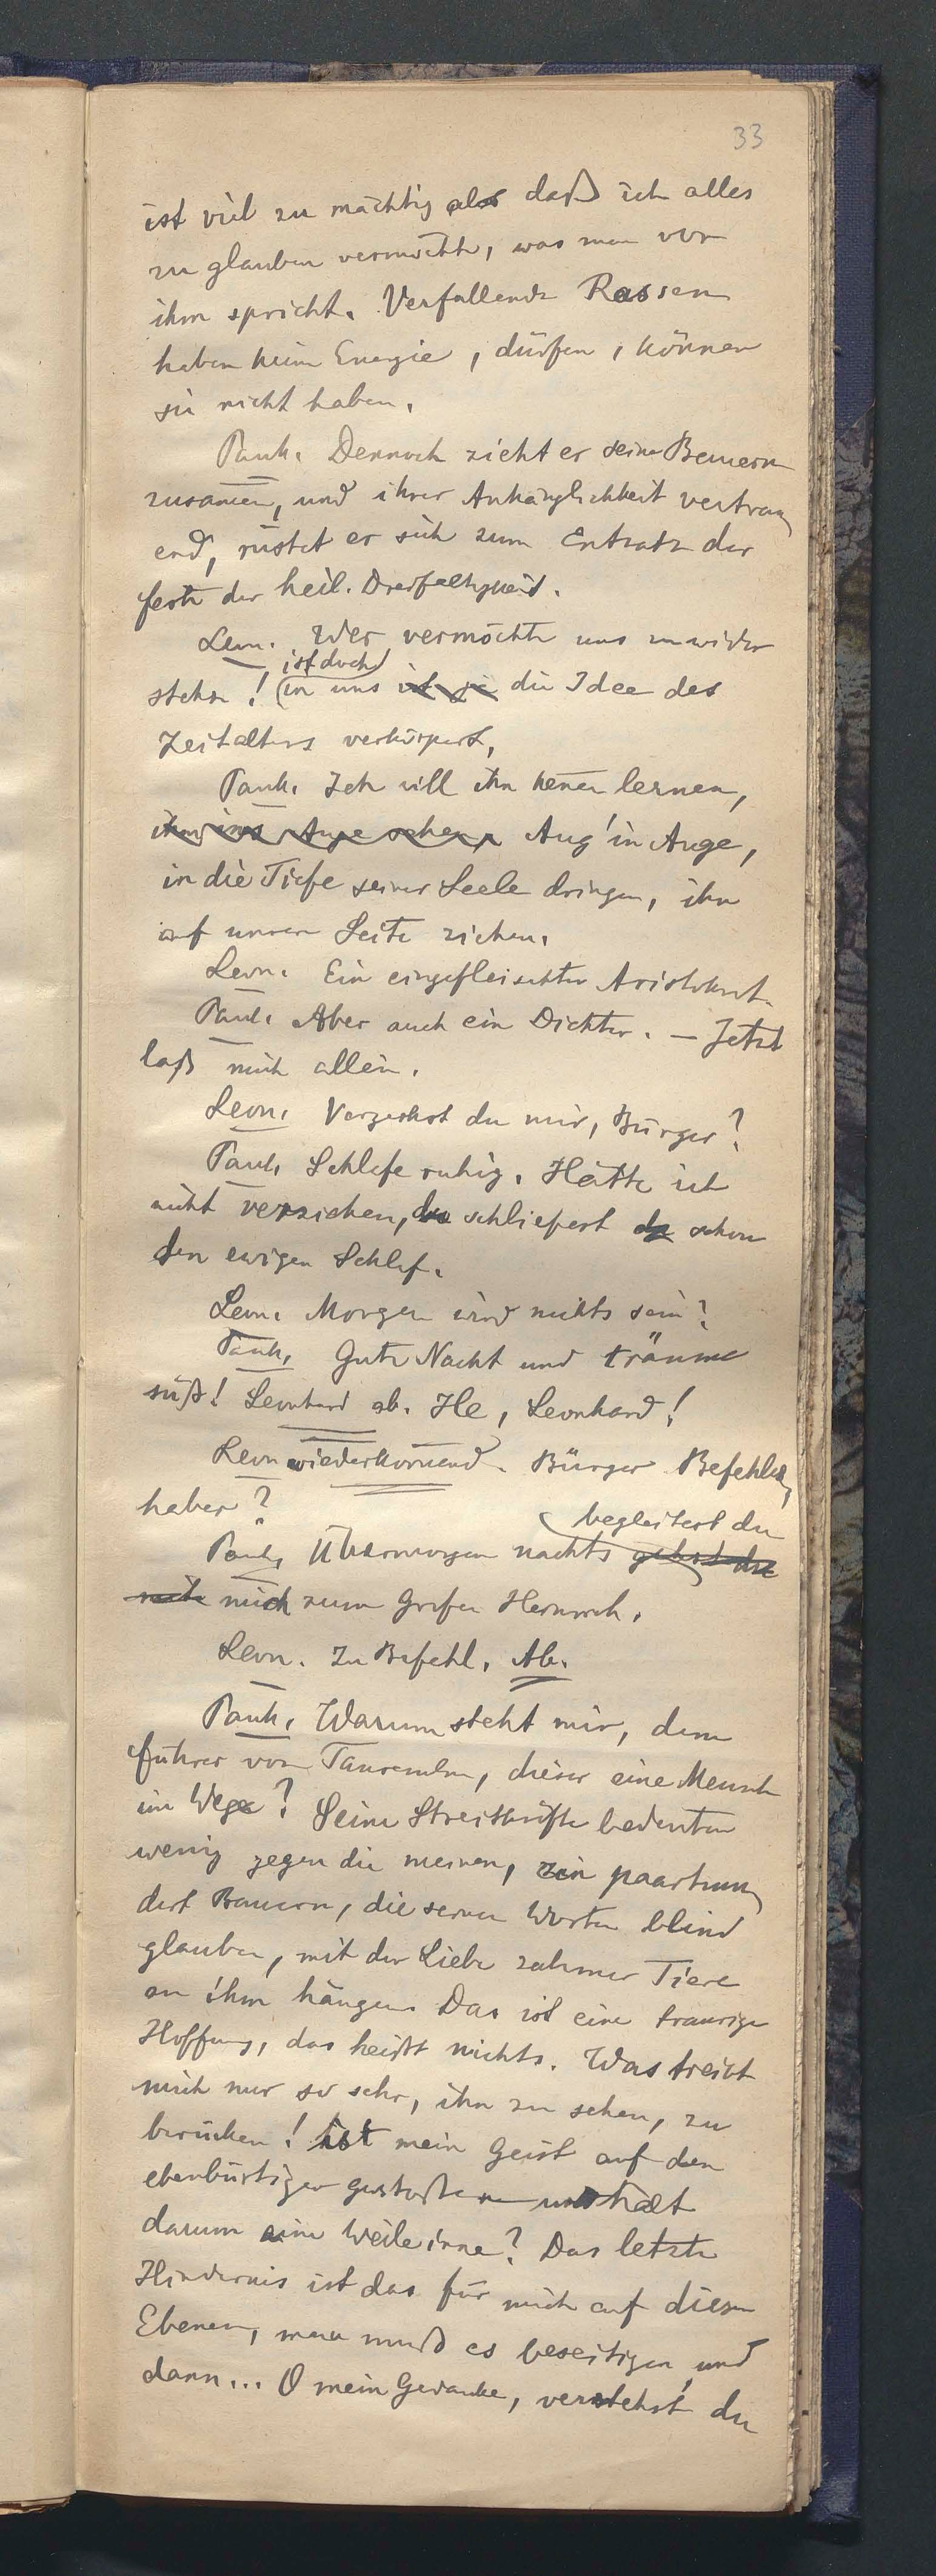 33
ist viel zu mächtig als daß ich alles
zu glauben vermöchte, was man vor
ihm spricht. Verfallende Rassen
haben keine Energie, dürfen, können
sie nicht haben.
Pank. Dennoch zieht er seine Bauern
zusamen, und ihrer Anhänglichkeit vertrau
end, rüstet er sich zum Entsatz der
feste der heil. Dreifaltigkeit.
Leon. Wer vermöchte uns zu wider
ist doch
stehn! in uns ist ja die Idee des
Zeitalters verkörpert.
Pank. Ich will ihn kenen lernen,
ihm ins Auge sehen, Aug' in Auge,
in die Tiefe seiner Seele dringen, ihn
auf unsere Seite ziehen.
Leon. Ein eingefleischter Aristokrat.
Pank. Aber auch ein Dichter. — Jetzt
laß mich allein.
Leon. Verzeihst du mir, Bürger?
Pank. Schlafe ruhig. Hätte ich
nicht verziehen, du schliefest da schon
den ewigen Schlaf.
Leon. Morgen wird nichts sein?
Pank. Gute Nacht und träume
süß! Leonhard ab. He, Leonhard!
Leon wiederkomend. Bürger Befehlen
haber?
begleitest du
Pank. Übermorgen nachts gehst du
mit mich zum Grafen Heinrich.
Leon. Zu Befehl. Ab.
Pank. Warum steht mir, dem
führer von Tausenden, dieser eine Mensch
im Wege? Seine Streitkräfte bedeuten
wenig gegen die meinen, ein paarhun
dert Bauern, die seinen Worten blind
glauben, mit der Liebe zahmer Tiere
an ihm hängen. Das ist eine traurige
Hoffnung, das heißt nichts. Was treibt
mich nur so sehr, ihn zu sehen, zu
berücken! Ist mein Geist auf den
ebenbürtigen gestoßen und hält
darum eine Weile inne? Das letzte
Hindernis ist das für mich auf diesen
Ebenen, man muß es beseitigen, und
dann... O mein Gedanke, verstehst du